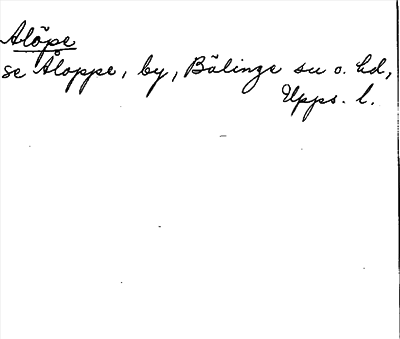 Alöpe
se Åloppe, by, Bälinge su o. hd,
Upps. l.